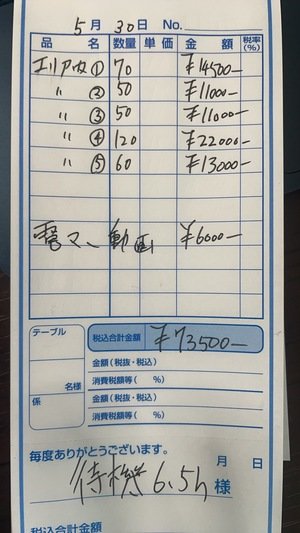 5月30日 No.
品名 数量 単価 金額 税率(%)
エリア内① 70 ¥14500-
〃 ② 50 ¥11000-
〃 ③ 50 ¥11000-
〃 ④ 120 ¥22000-
〃 ⑤ 60 ¥13000-
電マ、動画 ¥6000-
テーブル 税込合計金額 ¥73500-
金額(税抜・税込)
名様 消費税額等( %)
係 金額(税抜・税込)
消費税額等( %)
毎度ありがとうございます。
月 日
待機 6.5h 様
税込合計金額